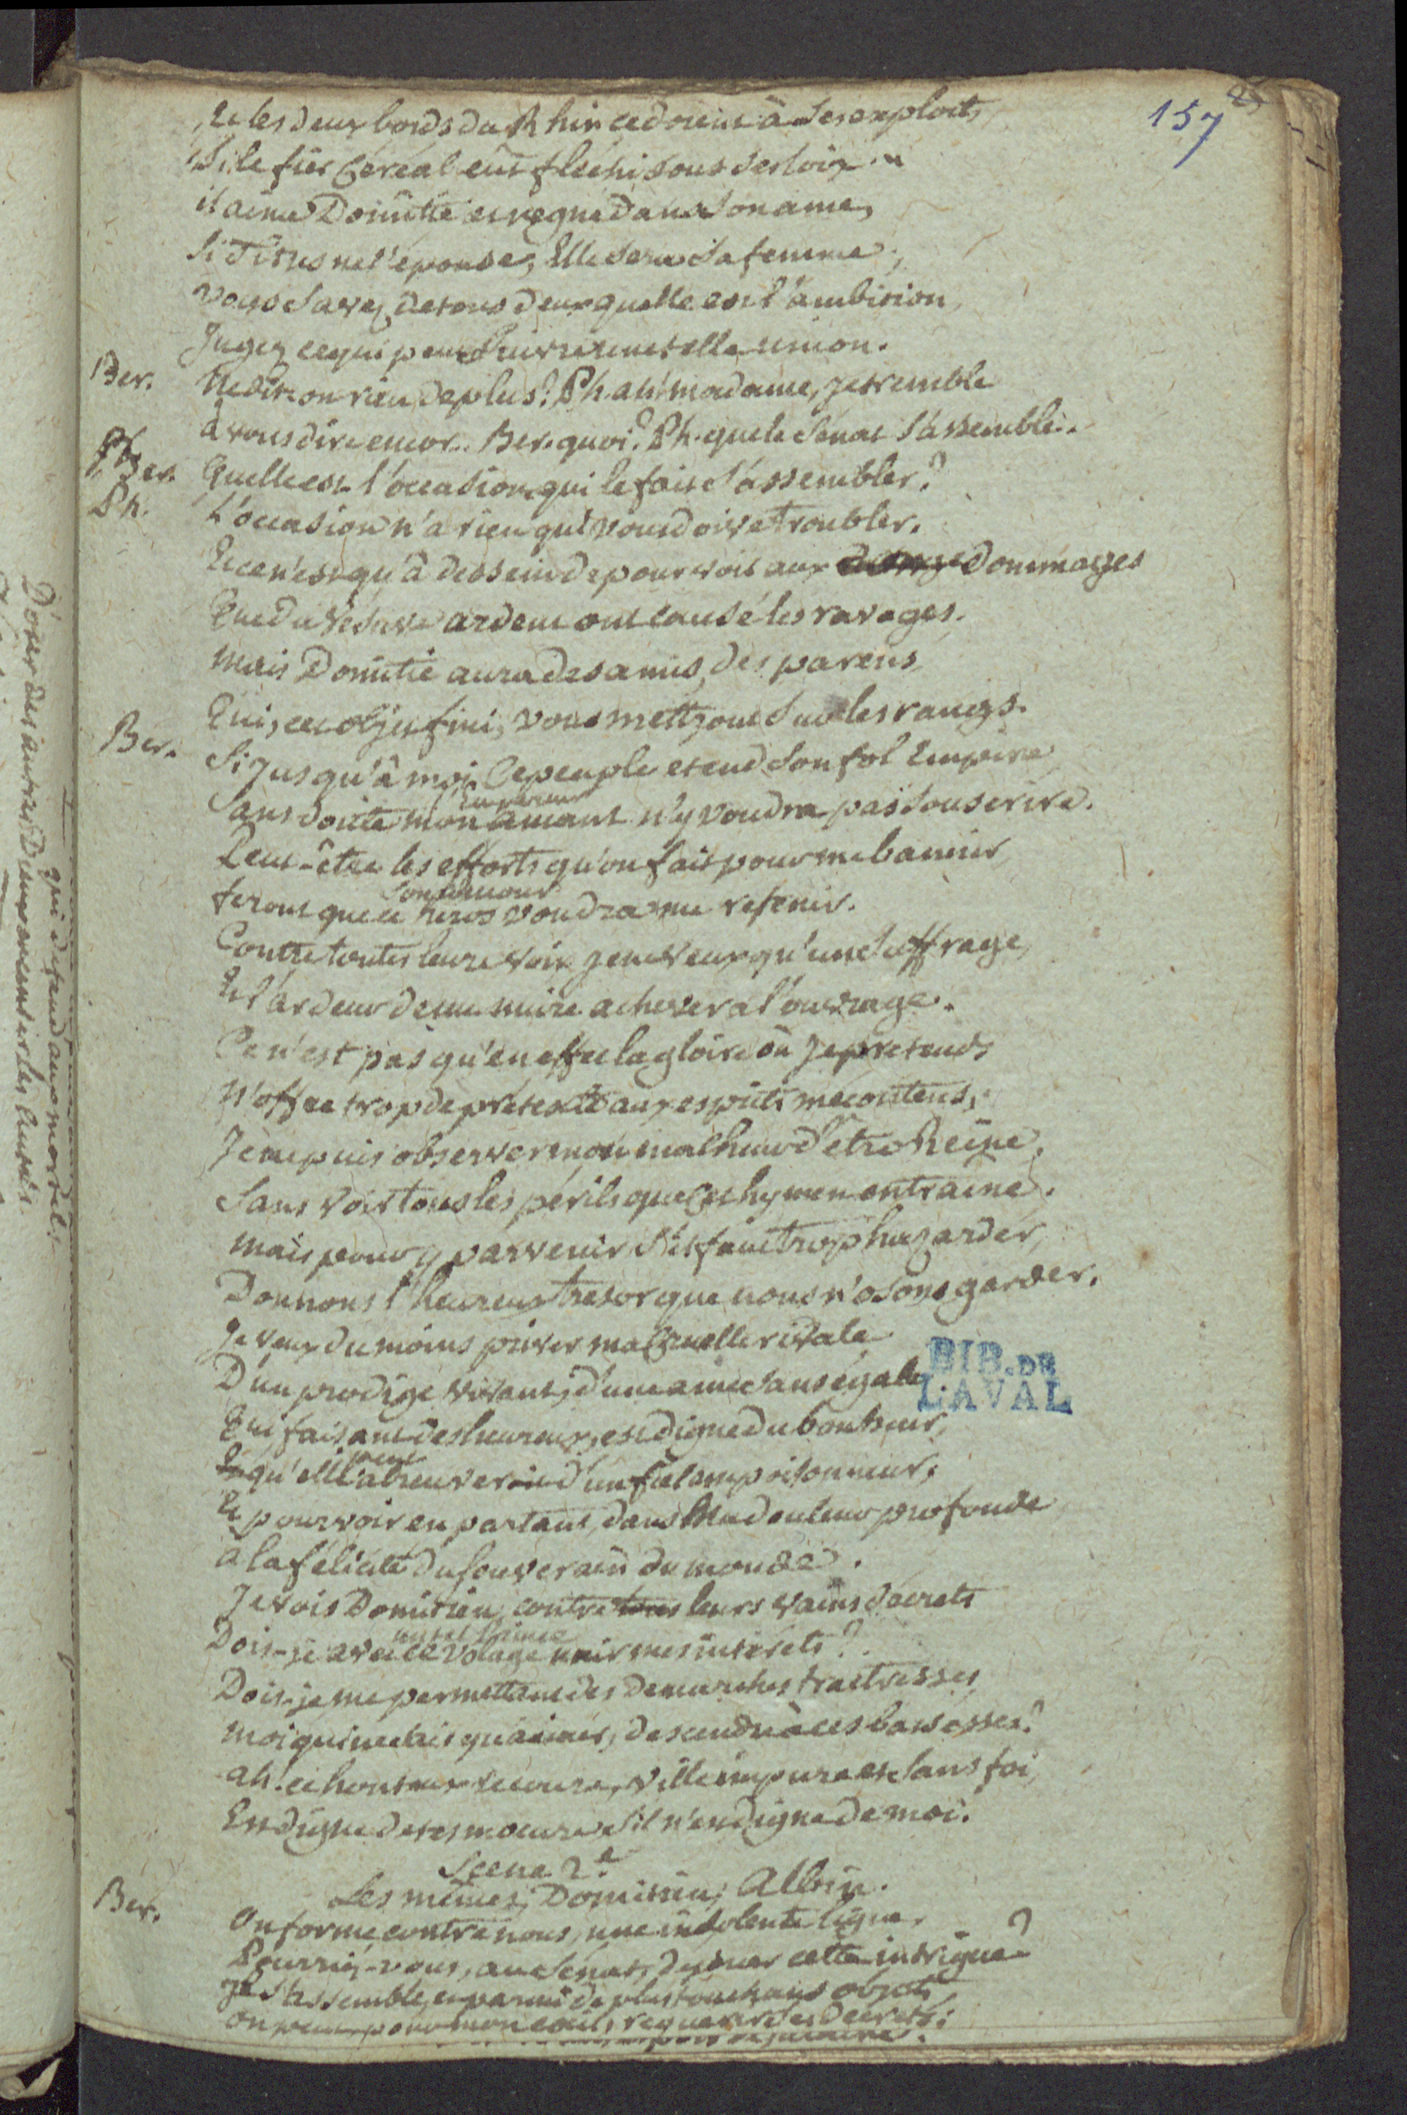 157
25
Et les deux bords du Rhin cedoient à ses exploits
Si le fier Céréal eût fléchi sous ses loix
il aime Domitie et regne dans son ame,
Si Titus ne l'épouse, Elle sera sa femme;
Vous savez de tous deux quelle est l'ambition
Jugez ce qui peut suivre une telle union.
Ber. Ne dit-on rien de plus? Ph. ah! madame, je tremble
à vous dire encor.. Ber. quoi? Ph. que le Senat s'assemble.
Ber. Quelle est l'occasion qui le fait s'assembler?
Ph. L'occasion n'a rien qui vous doive troubler.
Et ce n'est qu'à dessein de pourvoir aux dommages
Que du Vésuve ardent ont causé les ravages.
Mais Domitie aura des amis, des parens
Qui, cet objet fini, vous mettront sur les rangs.
Ber. Si jusqu'à moi, ce peuple etend son fol Empire
l'Empereur
Sans doute mon amant n'y voudra pas souscrire.
Peut-être les efforts qu'on fait pour me bannir
son amour
feront que ce heros voudra me retenir.
Contre toutes leurs voix je ne veux qu'un suffrage,
Et l'ardeur de me nuire achevera l'ouvrage.
Ce n'est pas qu'en effet la gloire où je prétends
N'offre trop de prétexte aux esprits mécontens,
Je ne puis observer mon malheur d'être Reine,
Sans voir tous les périls que cet hymen entraine.
Mais pour y parvenir s'il faut trop hazarder,
Donnons l'heureux trésor que nous n'osons garder.
Je veux du moins priver ma cruelle rivale
D'un prodige vivant, d'une ame sans égale
Qui faisant des heureux, est digne du bonheur,
peut
Et qu'elle abreuveroit d'un fiel empoisonneur,
Et pourvoir en partant, dans ma douleur profonde
à la félicité du souverain du monde.
Je vois Domitien, contre tous leurs vains décrets
un tel Prince
Dois-je avec ce volage unir mes intérêts?
Dois-je me permettant des demarches traîtresses
Moi qui ne sais qu'aimer, descendre à ces bassesses?
ah! ce honteux secours, ville impure et sans foi,
Est digne de tes moeurs s'il n'est digne de moi.
Scene 2e.
Les mêmes, Domitien, Albin.
Ber. On forme contre nous, une insolente ligue.
Pourriez-vous, au Sénat, dejouer cette intrigue?
Il s'assemble, et parmi de plus touchans objets
on peut pour mon exil, requerir des decrets;
BIB. DE
LAVAL
qui défend aux mortels